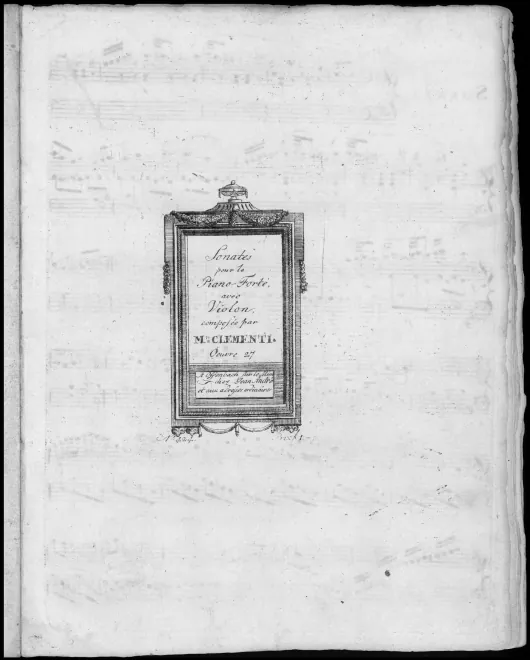 Sonates
pour le
Piano-Forte.
avec
Violon,
composées par
Mr. CLEMENTI.
Oeuvre 27
A Offenbach sur le Mein
chez Jean André
et aux adresses ordinaires